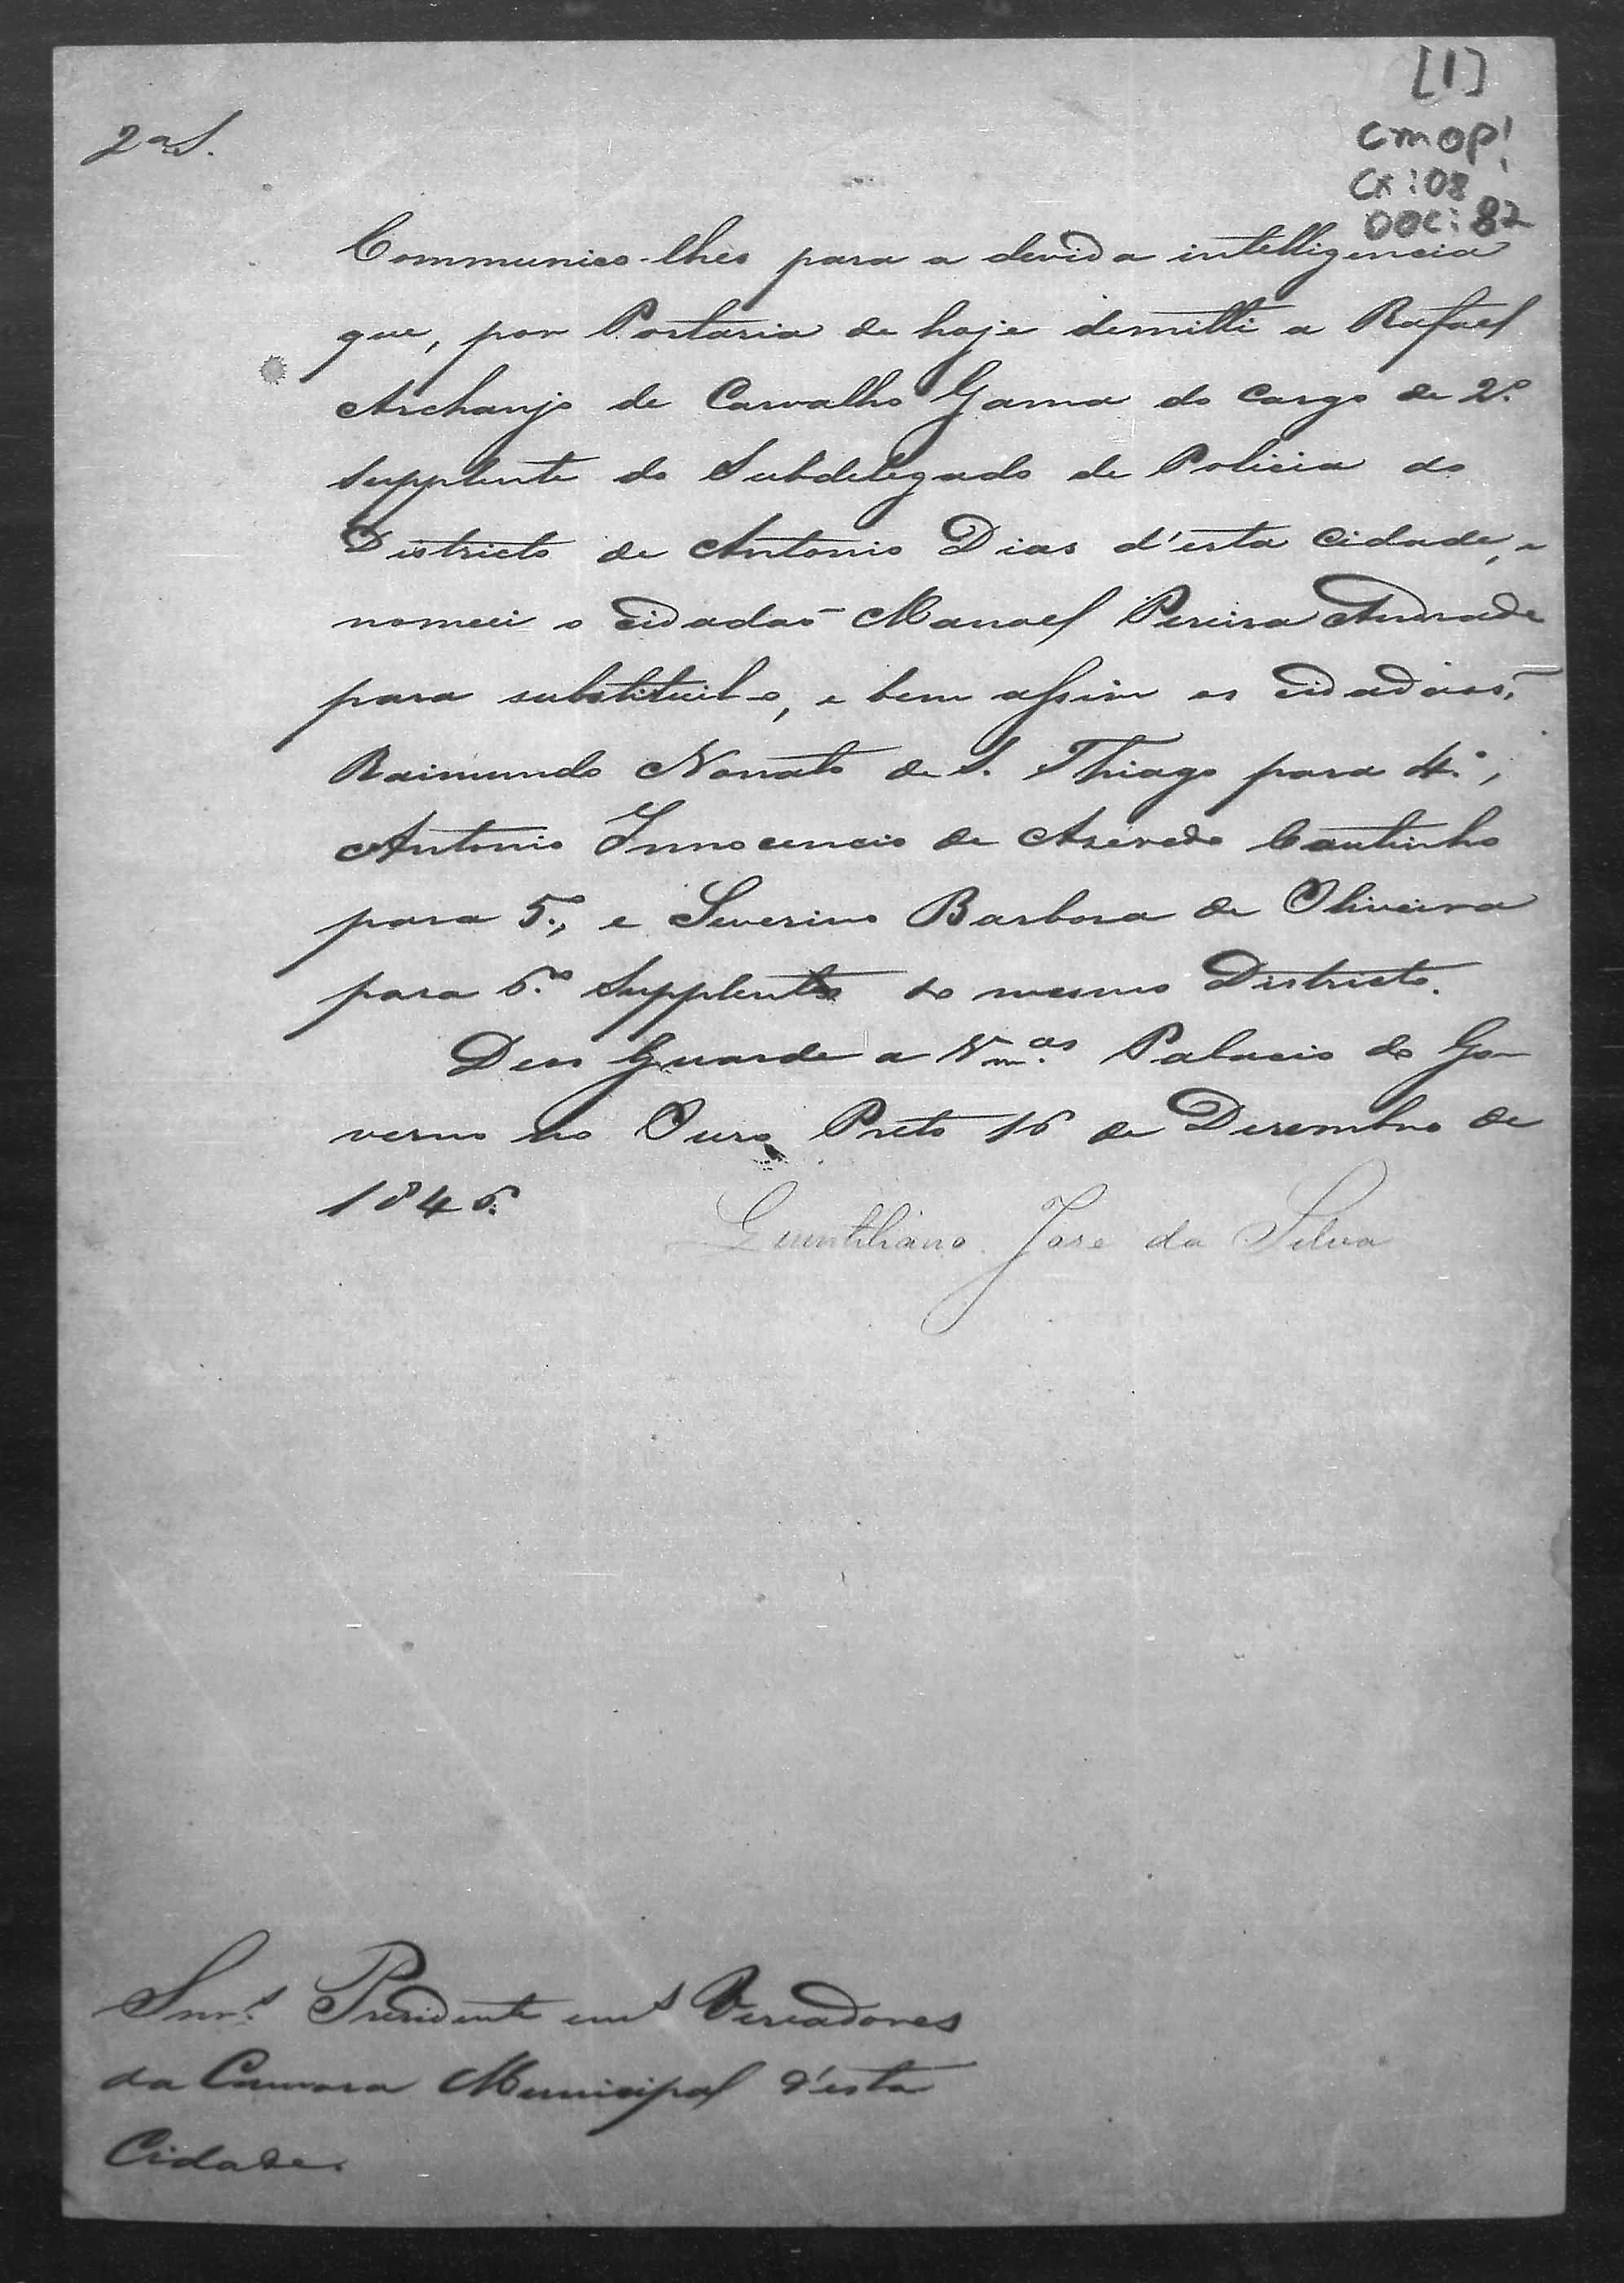 [1]
CMOP!
CX:08
DOC:82
2ª S.
Communico-lhes para a devida intelligencia
que, por Portaria de hoje demitti a Rafael
Archanjo de Carvalho Gama do cargo de 2.º
Supplente do Subdelegado de Policia do
Districto de Antonio Dias d'esta Cidade, e
nomeei o Cidadaõ Manoel Pereira Andrade
para substituil-o, e bem assim os Cidadaõs,
Raimundo Nonato de S. Thiago para 4.º,
Antonio Innocencio de Azevedo Coutinho
para 5.º, e Severino Barbosa de Oliveira
para 6.º Supplentes do mesmo Districto.
Deos Guarde a Vm.ces Palacio do Go-
verno no Ouro Preto 16 de Dezembro de
1846.
Quintiliano José da Silva
Snr.s Presidente e m.s Vereadores
da Camara Municipal d'esta
Cidade.